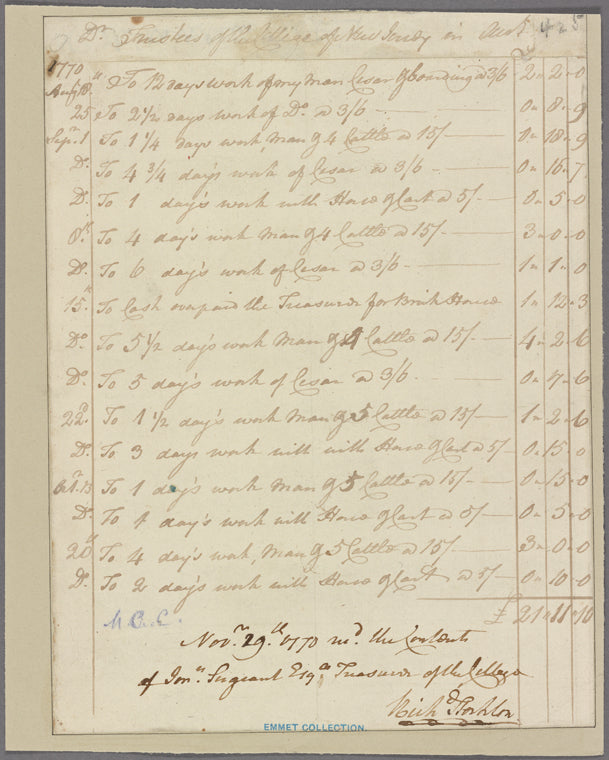 Dr. Trustees of the College of New Jersey in Acct
425
1770
Augt 18th To 12 days work of my man Cesar & boarding @ 3/6 2 " 2 " 0
25 To 2 1/2 days work of Do. @ 3/6 0 " 8 " 9
Sepr. 1 To 1 1/4 days work, Man & 4 Cattle @ 15/ 0 " 18 " 9
Do. To 4 3/4 day's work of Cesar @ 3/6 0 " 16 " 7
Do. To 1 day's work with Horse & Cart @ 5/ 0 " 5 " 0
8th. To 4 day's work Man & 4 Cattle @ 15/ 3 " 0 " 0
Do. To 6 day's work of Cesar @ 3/6 1 " 1 " 0
15th. To Cash overpaid the Treasurer for Brick House 1 " 12 " 3
Do. To 5 1/2 day's work Man & 4 Cattle @ 15/ 4 " 2 " 6
Do. To 5 day's work of Cesar @ 3/6 0 " 17 " 6
22d. To 1 1/2 day's work Man & 5 Cattle @ 15/ 1 " 2 " 6
Do. To 3 days work with with Horse & Cart @ 5/ 0 " 15 " 0
Octr. 13 To 1 day's work Man & 5 Cattle @ 15/ 0 " 15 " 0
Do. To 1 day's work with Horse & Cart @ 5/ 0 " 5 " 0
20th To 4 day's work, Man & 5 Cattle @ 15/ 3 " 0 " 0
Do. To 2 day's work with Horse & Cart @ 5/ 0 " 10 " 0
£ 21 " 11 " 10
Novr. 29th. 1770 recd. the Contents
of Jonn. Sergeant Esqr. Treasurer of the College
Richd. Stockton
EMMET COLLECTION.